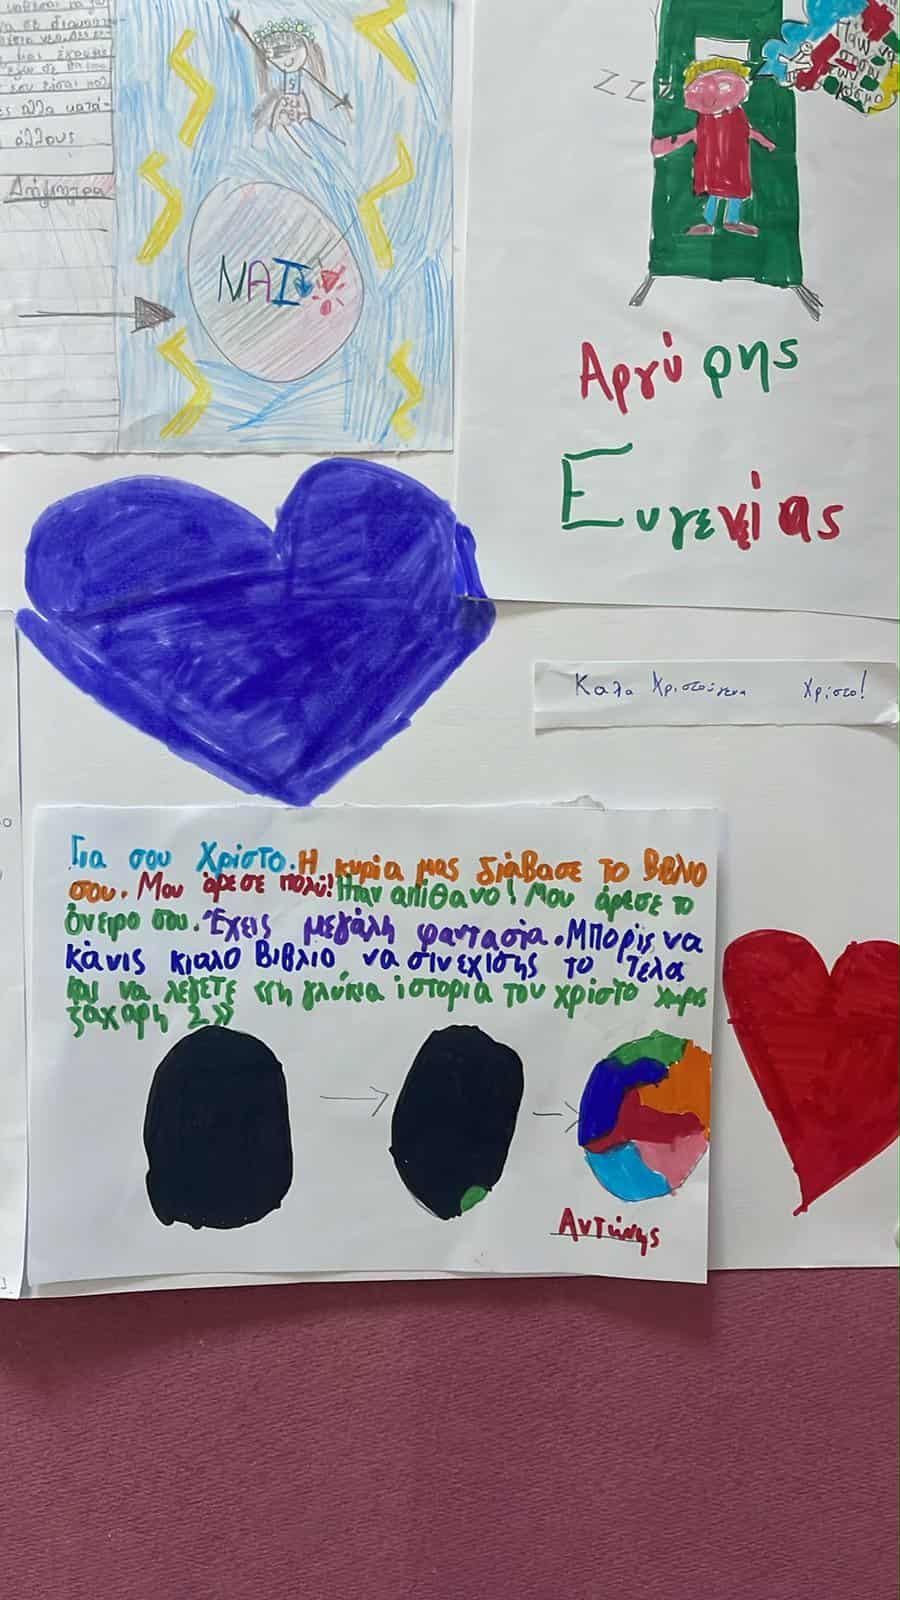 άλλους
Δήμητρα
ΝΑΙ
ZZZ
Πάω να
σώσω
τον
κόσμο
Αργύρης
Ευγενίας
Καλα Χριστούγεννα Χρίστο!
Για σου Χρίστο. Η κυρία μας διάβασε το Βιβλιο
σου. Μου άρεσε πολύ! Ήταν απίθανο! Μου άρεσε το
όνειρο σου. Έχεις μεγάλη φαντασία. Μπορίς να
κάνις κιαλο Βιβλιο να σινεχισης το τέλος
και να λέγετε «η γλύκια ιστορία του χρίστο χωρις
ζάχαρη 2»
Αντώνης